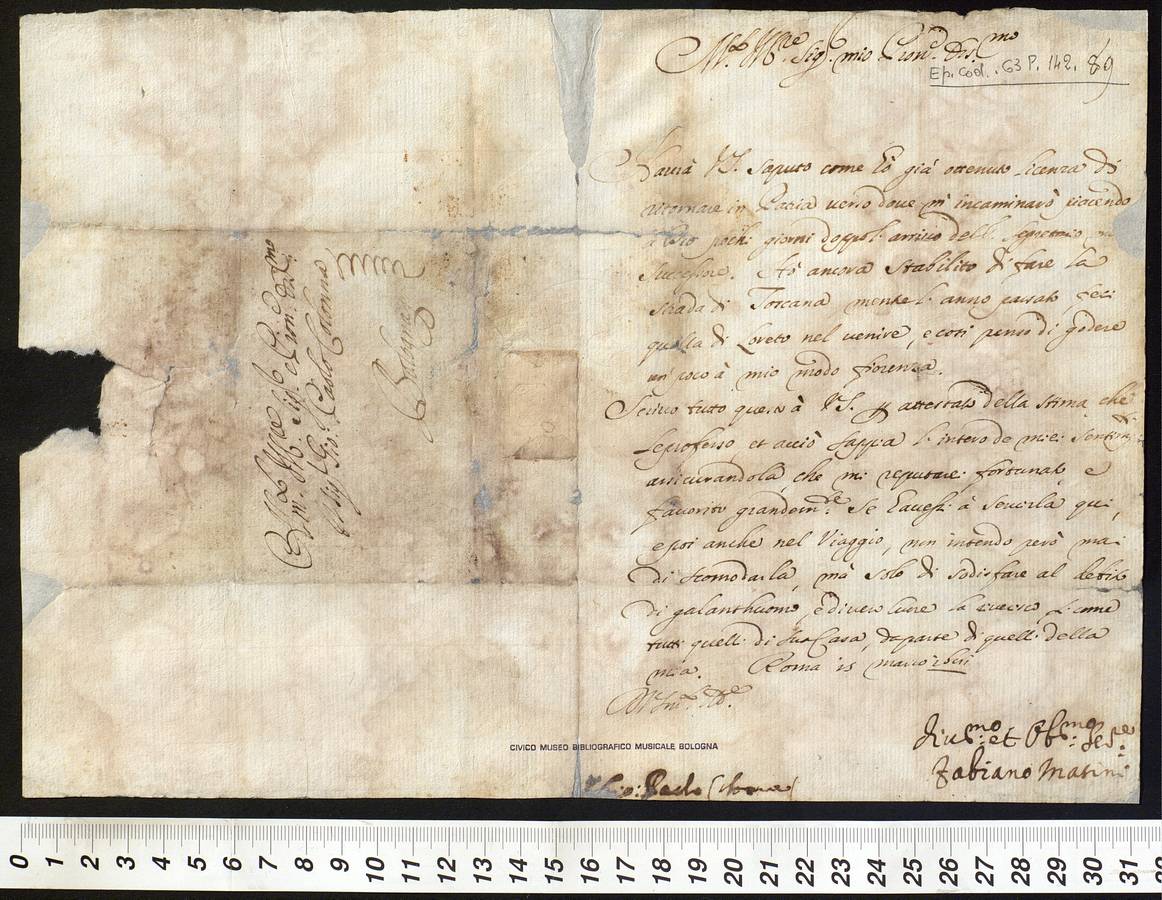 Molto Ill.re Sig.r mio P.ron Oss.mo
Ep. Cod. . G3 P. 142. 89
Haurà V.S. saputo come hò già ottenuto licenza di
ritornare in Patria verso dove m'incaminarò piacendo
à Dio pochi giorni doppo l'arrivo dell'
successore. Hò ancora stabilito di fare la
strada di Toscana mentre l'anno passato feci
quella di Loreto nel venire, e così penso di godere
un poco à mio modo Fiorenza.
Scrivo tutto questo à V.S. p attestato della stima che
le professo, et acciò sappia l'intero de miei
assicurandola che mi reputarei fortunato, e
favorito grandem.te se havessi à servirla qui,
e poi anche nel Viaggio, non intendo però mai
di scomodarla, mà solo di sodisfare al debito
di galanthuomo, e la riverisco, si come
tutti quelli di sua Casa, da parte di quelli della
mia. Roma marzo
Div.mo et Obl.mo Ser.re
Fabiano Masini
Sig. Gio: Paolo Colonna
All' Ill.re Sig.r P.ron Oss.mo
Il Sig.r Gio: Paolo Colonna
Bologna
CIVICO MUSEO BIBLIOGRAFICO MUSICALE BOLOGNA
0 1 2 3 4 5 6 7 8 9 10 11 12 13 14 15 16 17 18 19 20 21 22 23 24 25 26 27 28 29 30 31 32